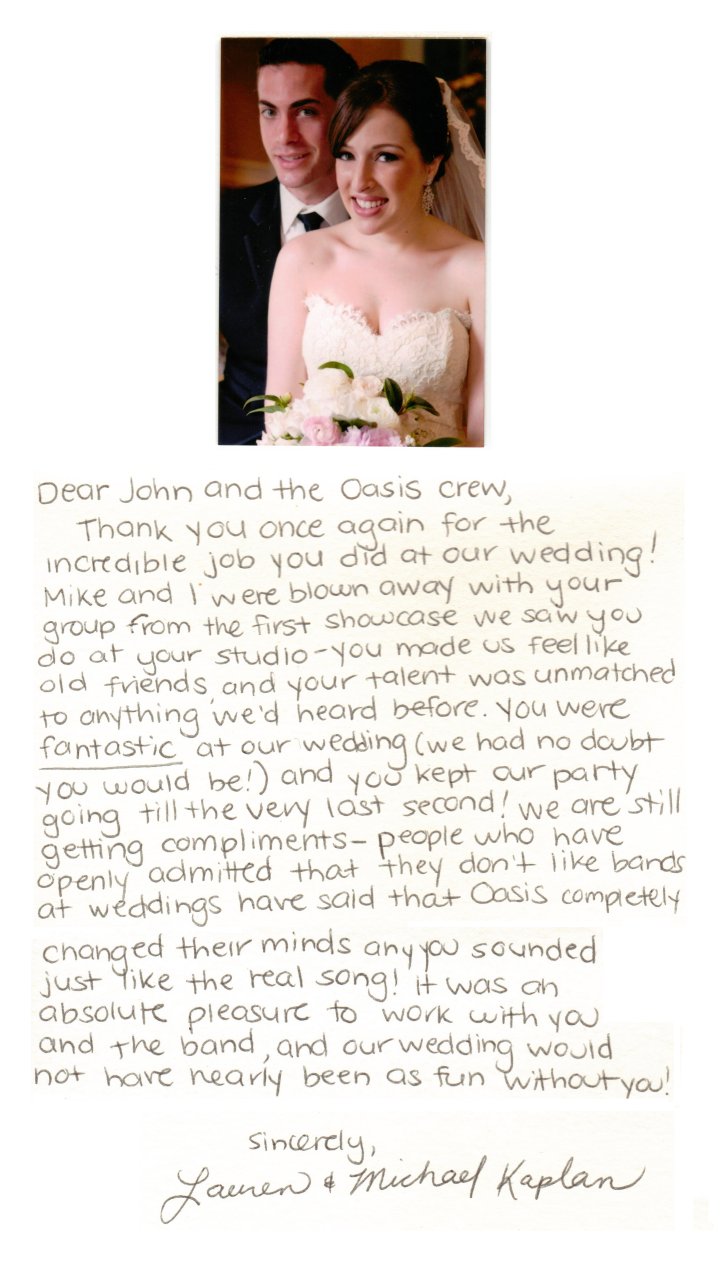 Dear John and the Oasis crew,
Thank you once again for the
incredible job you did at our wedding!
Mike and I were blown away with your
group from the first showcase we saw you
do at your studio - you made us feel like
old friends, and your talent was unmatched
to anything we'd heard before. You were
fantastic at our wedding (we had no doubt
you would be!) and you kept our party
going till the very last second! We are still
getting compliments - people who have
openly admitted that they don't like bands
at weddings have said that Oasis completely
changed their minds any you sounded
just like the real song! It was an
absolute pleasure to work with you
and the band, and our wedding would
not have nearly been as fun without you!
Sincerely,
Lauren & Michael Kaplan